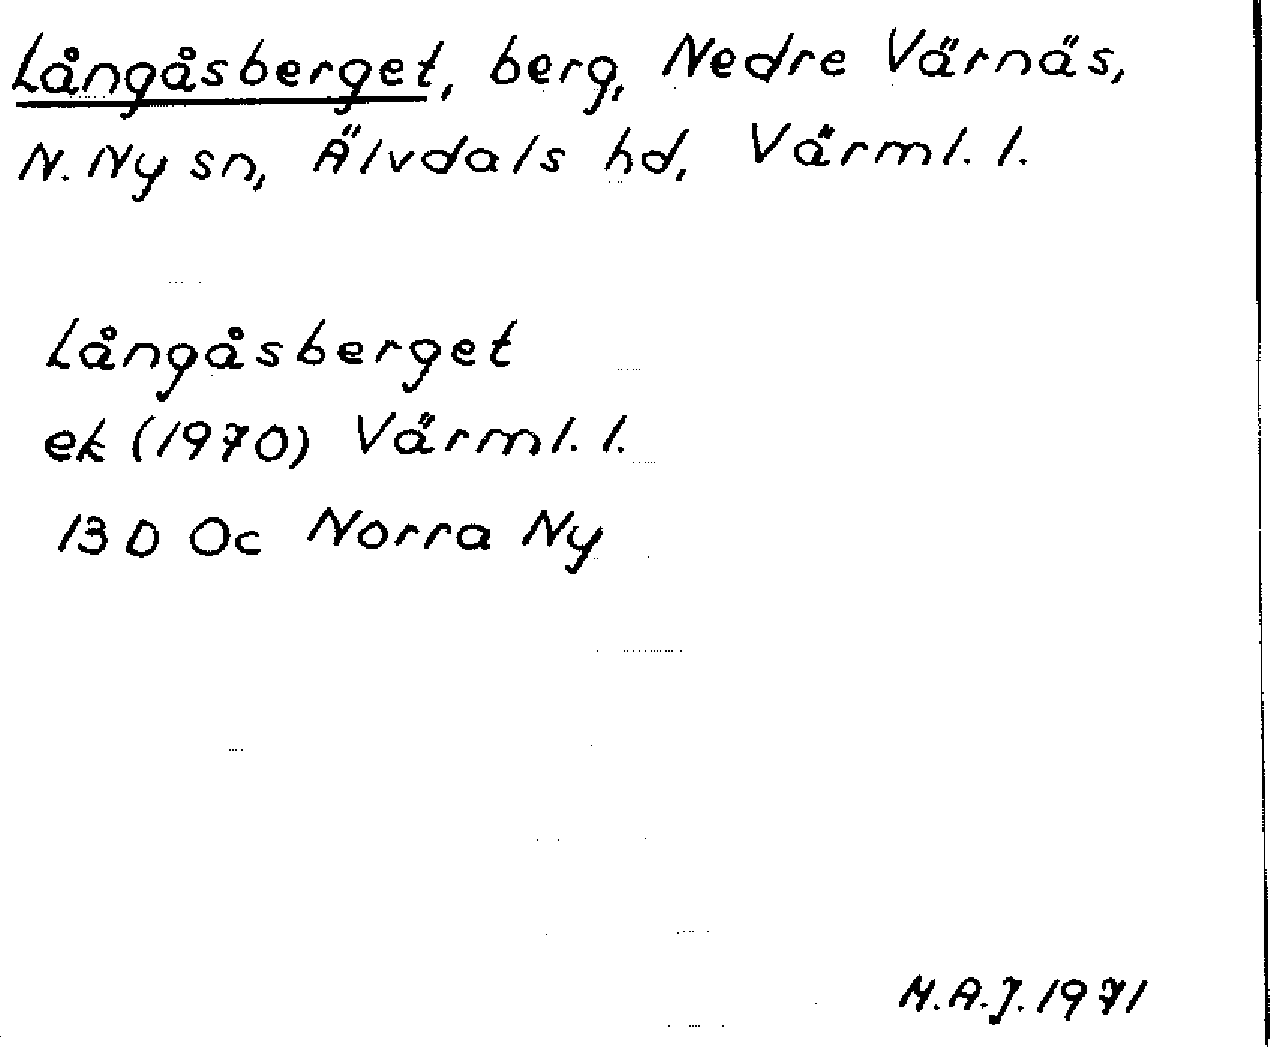 Långåsberget, berg, Nedre Värnäs,
N. Ny sn, Älvdals hd, Värml. l.
Långåsberget
ek (1970) Värml. l.
13 D 0c Norra Ny
M.A.J. 1971